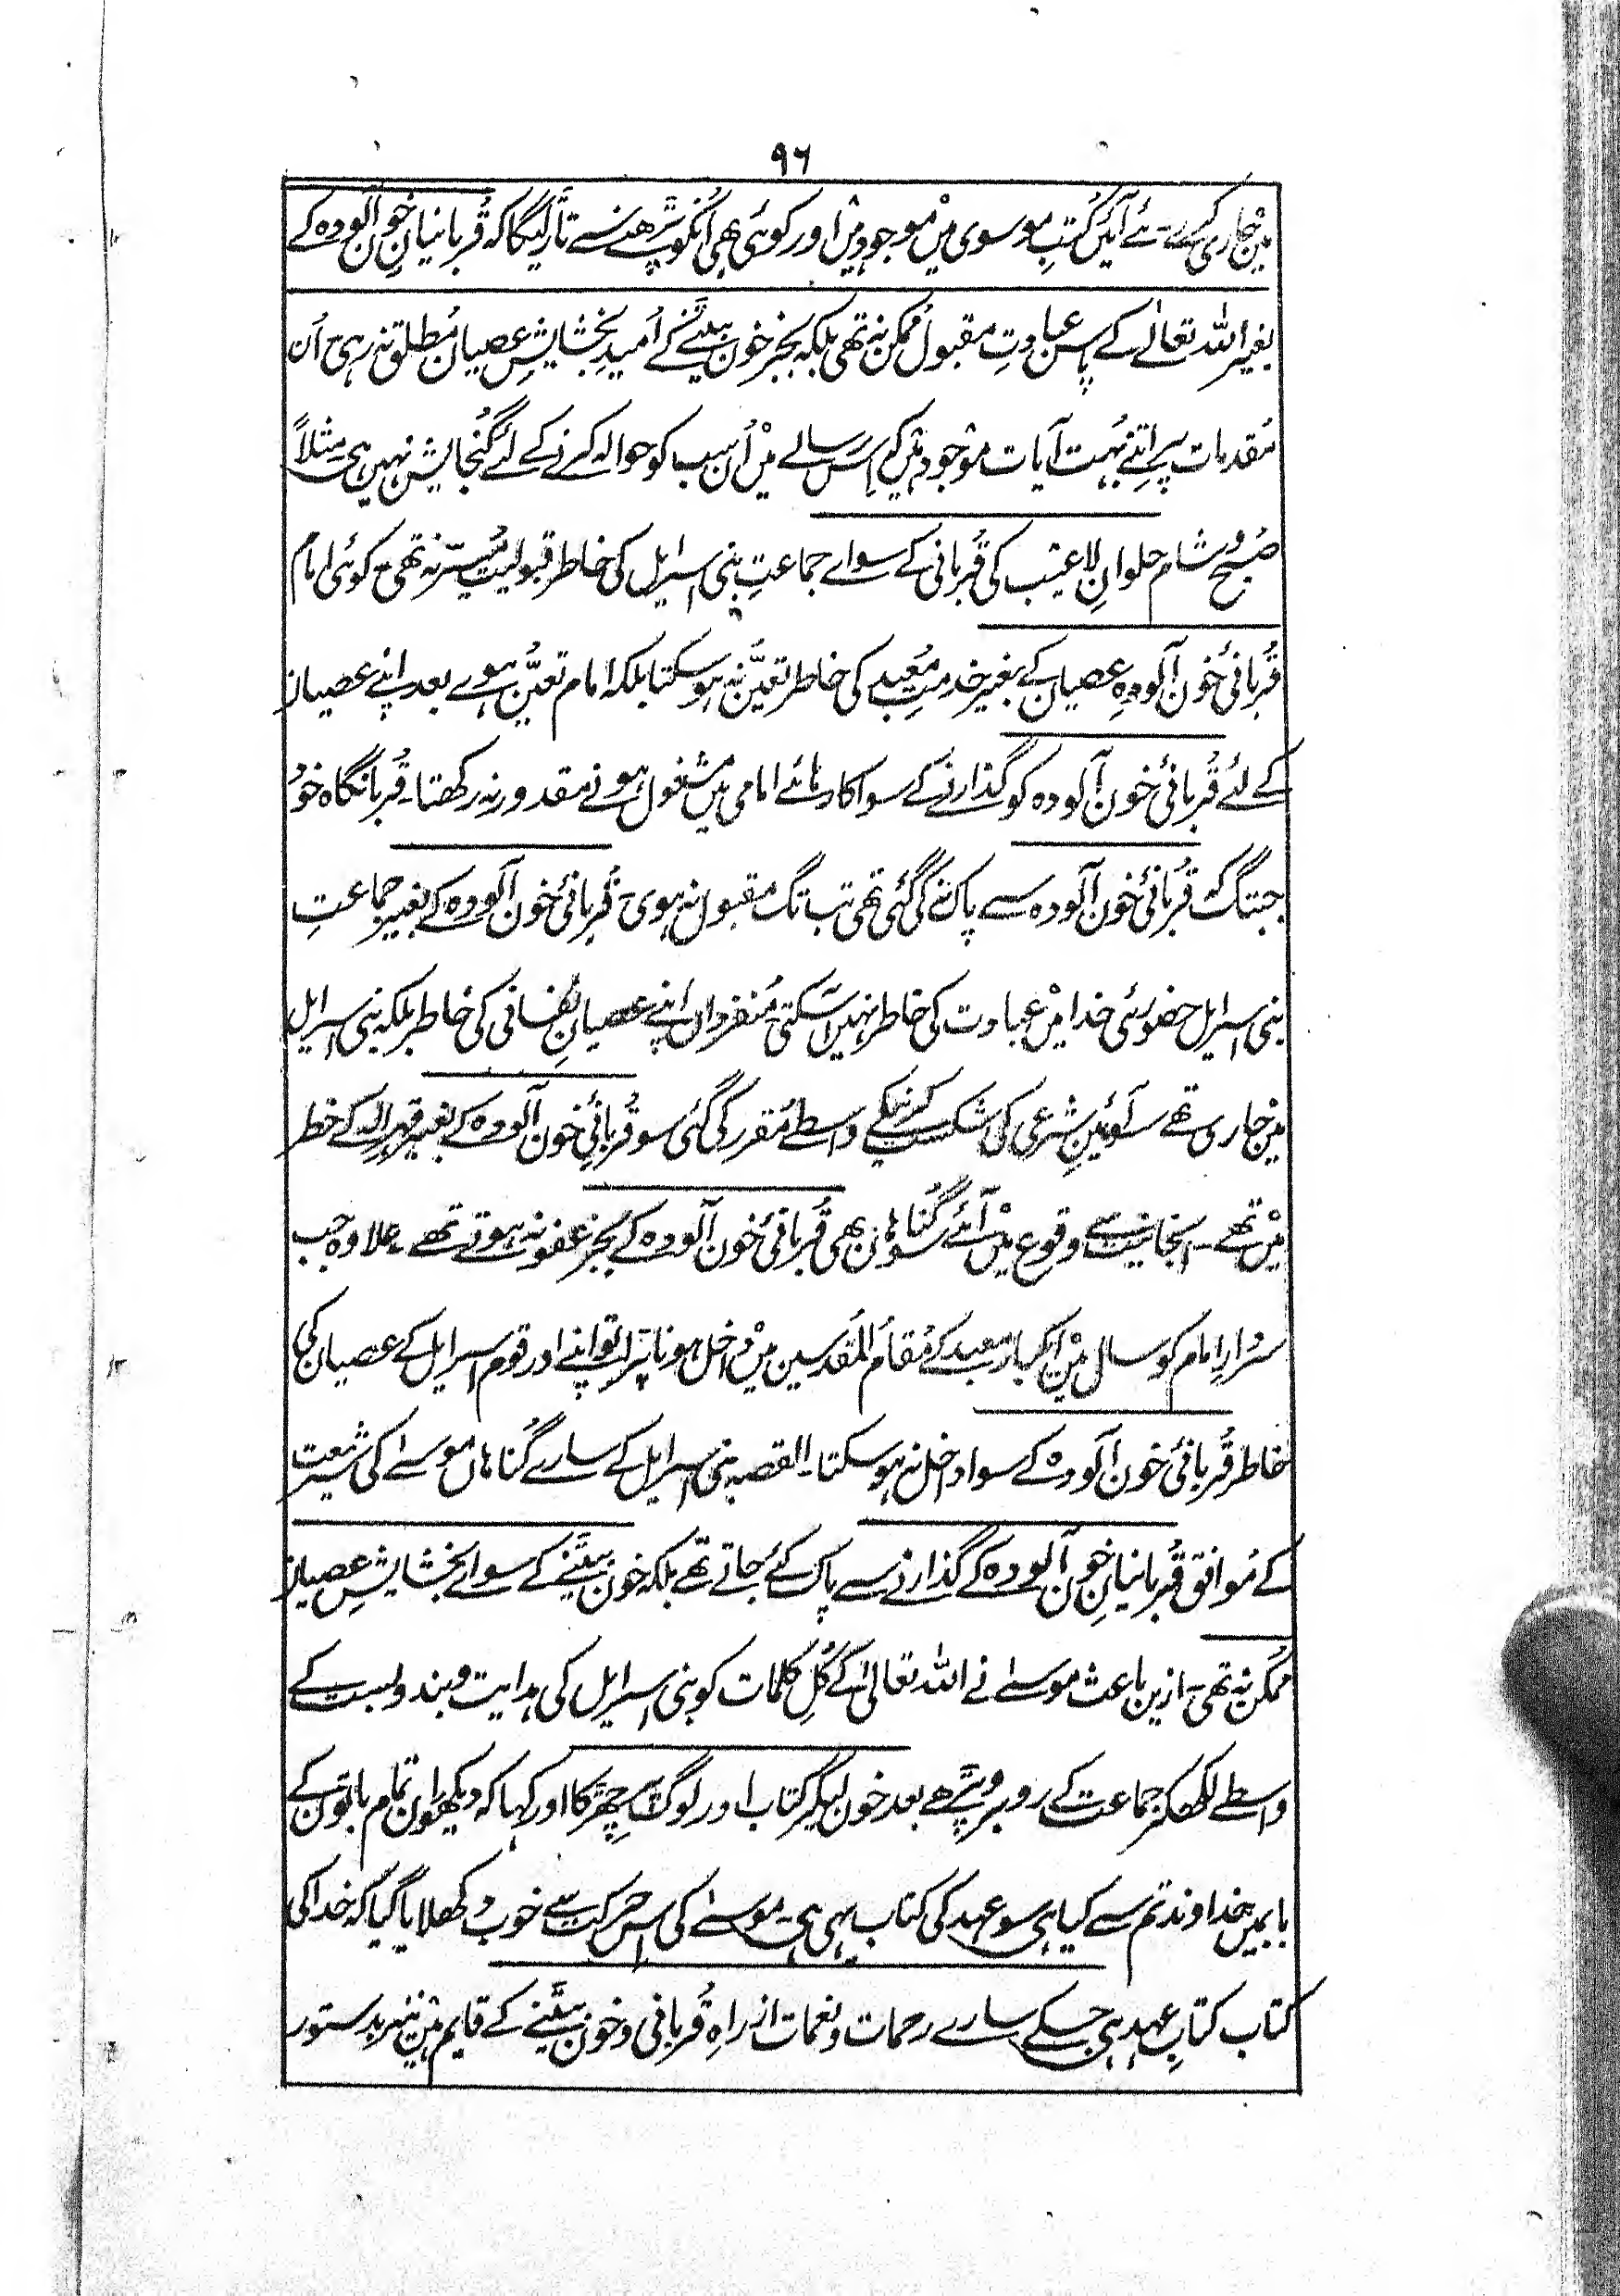 ۹۶
میں جاری کرے۔ ئے آئیں کُتبِ موسوی میں موجود ہیں اور کوئی بھی اُنکو پڑھنے سے تاڑ لیگا کہ قُربانیانِ خون آلودہ کے
بغیر اللہ تعالےٰ کے پاس عبادتِ مقبول مُمکن نہ تھی بلکہ بجز خون بہنے کے اُمیدِ بخشایشِ عصیان مُطلق نہ رہی۔ اُن
مُقدمات پر اتنے بُہت آیات موجود ہیں کہ اِس رسالے میں اُن سب کو حوالہ کرنے کے لئے گُنجایش نہیں ہی مثلاً
صُبح و شام حلوانِ لاعیب کی قُربانی کے سواے جماعتِ بنی اسرایل کی خاطر قبولیت میسّر نہ تھی۔ کوئی امام
قُربانیٔ خون آلودہِ عصیان کے بغیر خدمتِ معبد کی خاطر تعیّن نہ ہو سکتا بلکہ امام تعیُّن ہوے بعد اپنے عصیان
کے لئے قُربانیٔ خون آلودہ کو گذارنے کے سوا کارہائے امامی میں مشغول ہونے مقدور نہ رکھتا۔ قُربانگاہ خود
جبتگ کہ قُربانیٔ خون آلودہ سے پاک نہ کی گئی تھی تب تگ مقبول نہ ہوی۔ قُربانیٔ خون آلودہ کے بغیر جماعتِ
بنی اسرایل حضورئی خدا میں عبادت کی خاطر نہیں آسکتی مُنفرداں اپنے عصیانِ نفسانی کی خاطر بلکہ بنی اسرایل
میں جاری تھے سو آئینِ شرعی کی شکست کرنیکے واسطے مُقرر کی گئی سو قُربانیٔ خون آلودہ کے بغیر قہرِ الہ کے خطر
میں تھے۔ انجانیت سے وقوع میں آئے سو گُناہان بھی قُربانیٔ خون آلودہ کے بجز عفو نہ ہوتے تھے۔ علاوہ جب
سردارِ امام کو سال میں ایکبار معبد کے مُقام المُقدسین میں داخل ہونا پڑا تو اپنے اور قوم اسرایل کے عصیان کی
خاطر قُربانیٔ خون آلودہ کے سوا داخل نہ ہو سکتا۔ القصہ بنی اسرایل کے سارے گُناہاں موسےٰ کی شریعت
کے مُوافق قُربانیانِ خون آلودہ کے گذارنے سے پاک کئے جاتے تھے بلکہ خون بہنے کے سواے بخشایشِ عصیان
مُمکن نہ تھی۔ ازین باعث موسےٰ نے اللہ تعالیٰ کے کُل کلمات کو بنی اسرایل کی ہدایت و بندوبست کے
واسطے لکھکر جماعت کے روبرو پڑھے بعد خون لیکر کتاب اور لوگ پر چھڑکا اور کہا کہ دیکھو اِن تمام باتوں کے
بابمیں خداوند تم سے کیا ہی سو عہد کی کتاب یہی ہی۔ موسےٰ کی اِس حرکت سے خوب کھلایا گیا کہ خدا کی
کتاب کتابِ عہد ہی جسکے سارے رحمات و نعمات از راہِ قُربانی و خون بہنے کے قایم ہیں نیز بدستور